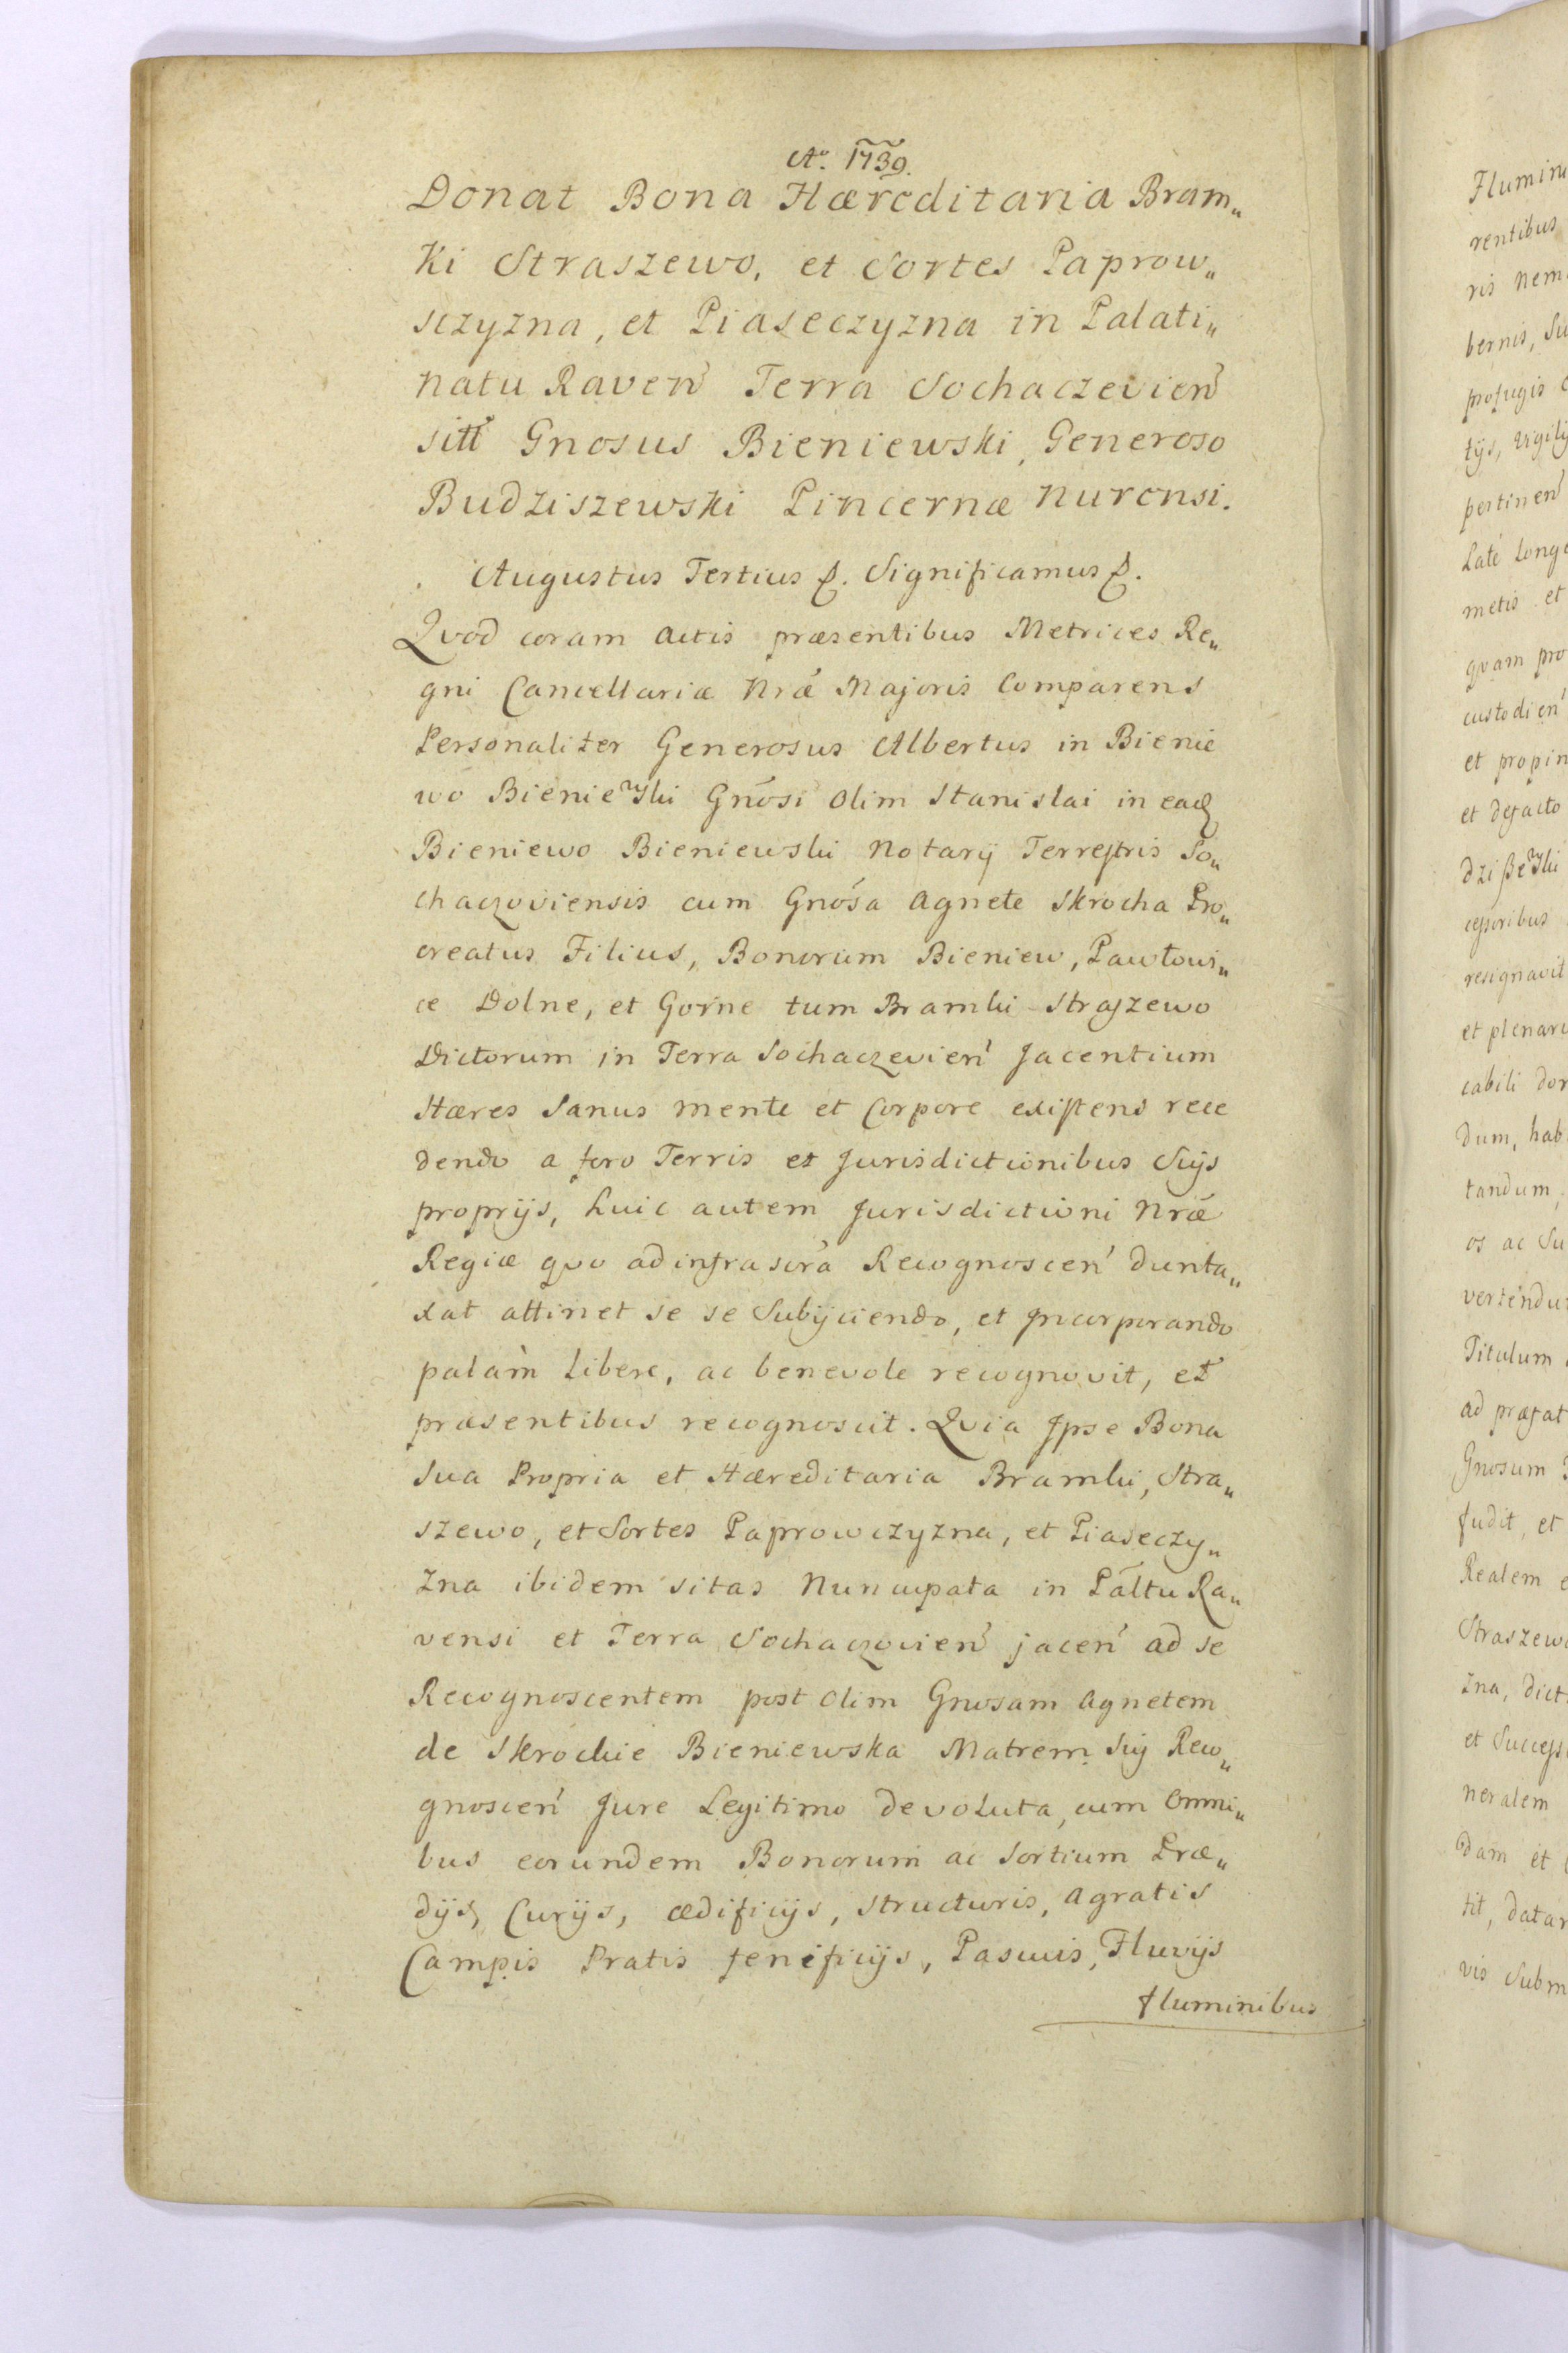 Ao. 1739.
Donat Bona Hæreditaria Bram„
Ki Straszewo, et Sortes Paprow„
sczyzna, et Piaseczyzna in Palati„
natu Raven̄ Terra Sochaczevien̄
sitt Gnosus Bieniewski, Generoso
Budziszewski Pincernæ Nurensi.
Augustus Tertius &. Significamus &.
Qvod coram actis præsentibus Metrices Re„
gni Cancellariæ Nræ Majoris Comparens
Personaliter Generosus Albertus in Bienie
wo Bieniewski Gnosi olim Stanislai in ead
Bieniewo Bieniewski Notarij Terrestris So„
chaczoviensis cum Gnosa Agnete Skrocha Pro„
creatus Filius, Bonorum Bieniew, Pawłowi„
ce Dolne, et Gorne tum Bramki Straszewo
Dictorum in Terra Sochaczevien̄ Jacentium
Hæres Sanus mente et Corpore existens rece
dendo a foro Terris et Jurisdictionibus Suijs
proprijs, huic autem Jurisdictioni Nræ
Regiæ qvo ad infrascra Recognoscen̄ dunta„
xat attinet se se Subijciendo, et Incorporando
palam Libere, ac benevole recognovit, et
præsentibus recognoscit. Qvia Ipse Bona
Sua Propria et Hæreditaria Bramki, Stra„
szewo, et Sortes Paprowczyzna, et Piaseczy„
zna ibidem sitas Nuncupata in Paltu Ra„
vensi et Terra Sochaczovien̄ jacen̄ ad se
Recognoscentem post olim Gnosam Agnetem
de Skrochie Bieniewska Matrem Sui Reco„
gnoscen̄ Jure Legitimo devoluta, cum Omni„
bus eorundem Bonorum ac Sortium Præ„
dijs, Curijs, ædificijs, structuris, Agratis
Campis Pratis fenificijs, Pascuis, Fluvijs
fluminibus
Flumin
rentibus
ris nem
bernis, Su
profugis
tijs, vigilij
pertinen̄
Late Longe
metis et
qvam pro
custodien̄
et propin
et defacto
dzißewski
cessoribus
resignavit
et plenari
cabili don
dum, hab
tandum,
os ac Su
vertendu
Titulum
ad præfat
Gnosum
fudit, et
Realem e
Straszewo
zna, dict
et Success
neralem
dam et
tit, datar
vis Subm